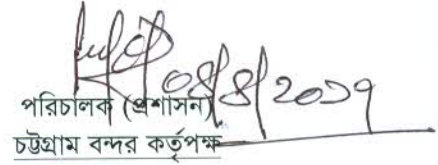 ০৪/৪/২০১৭
পরিচালক (প্রশাসন)
চট্টগ্রাম বন্দর কর্তৃপক্ষ